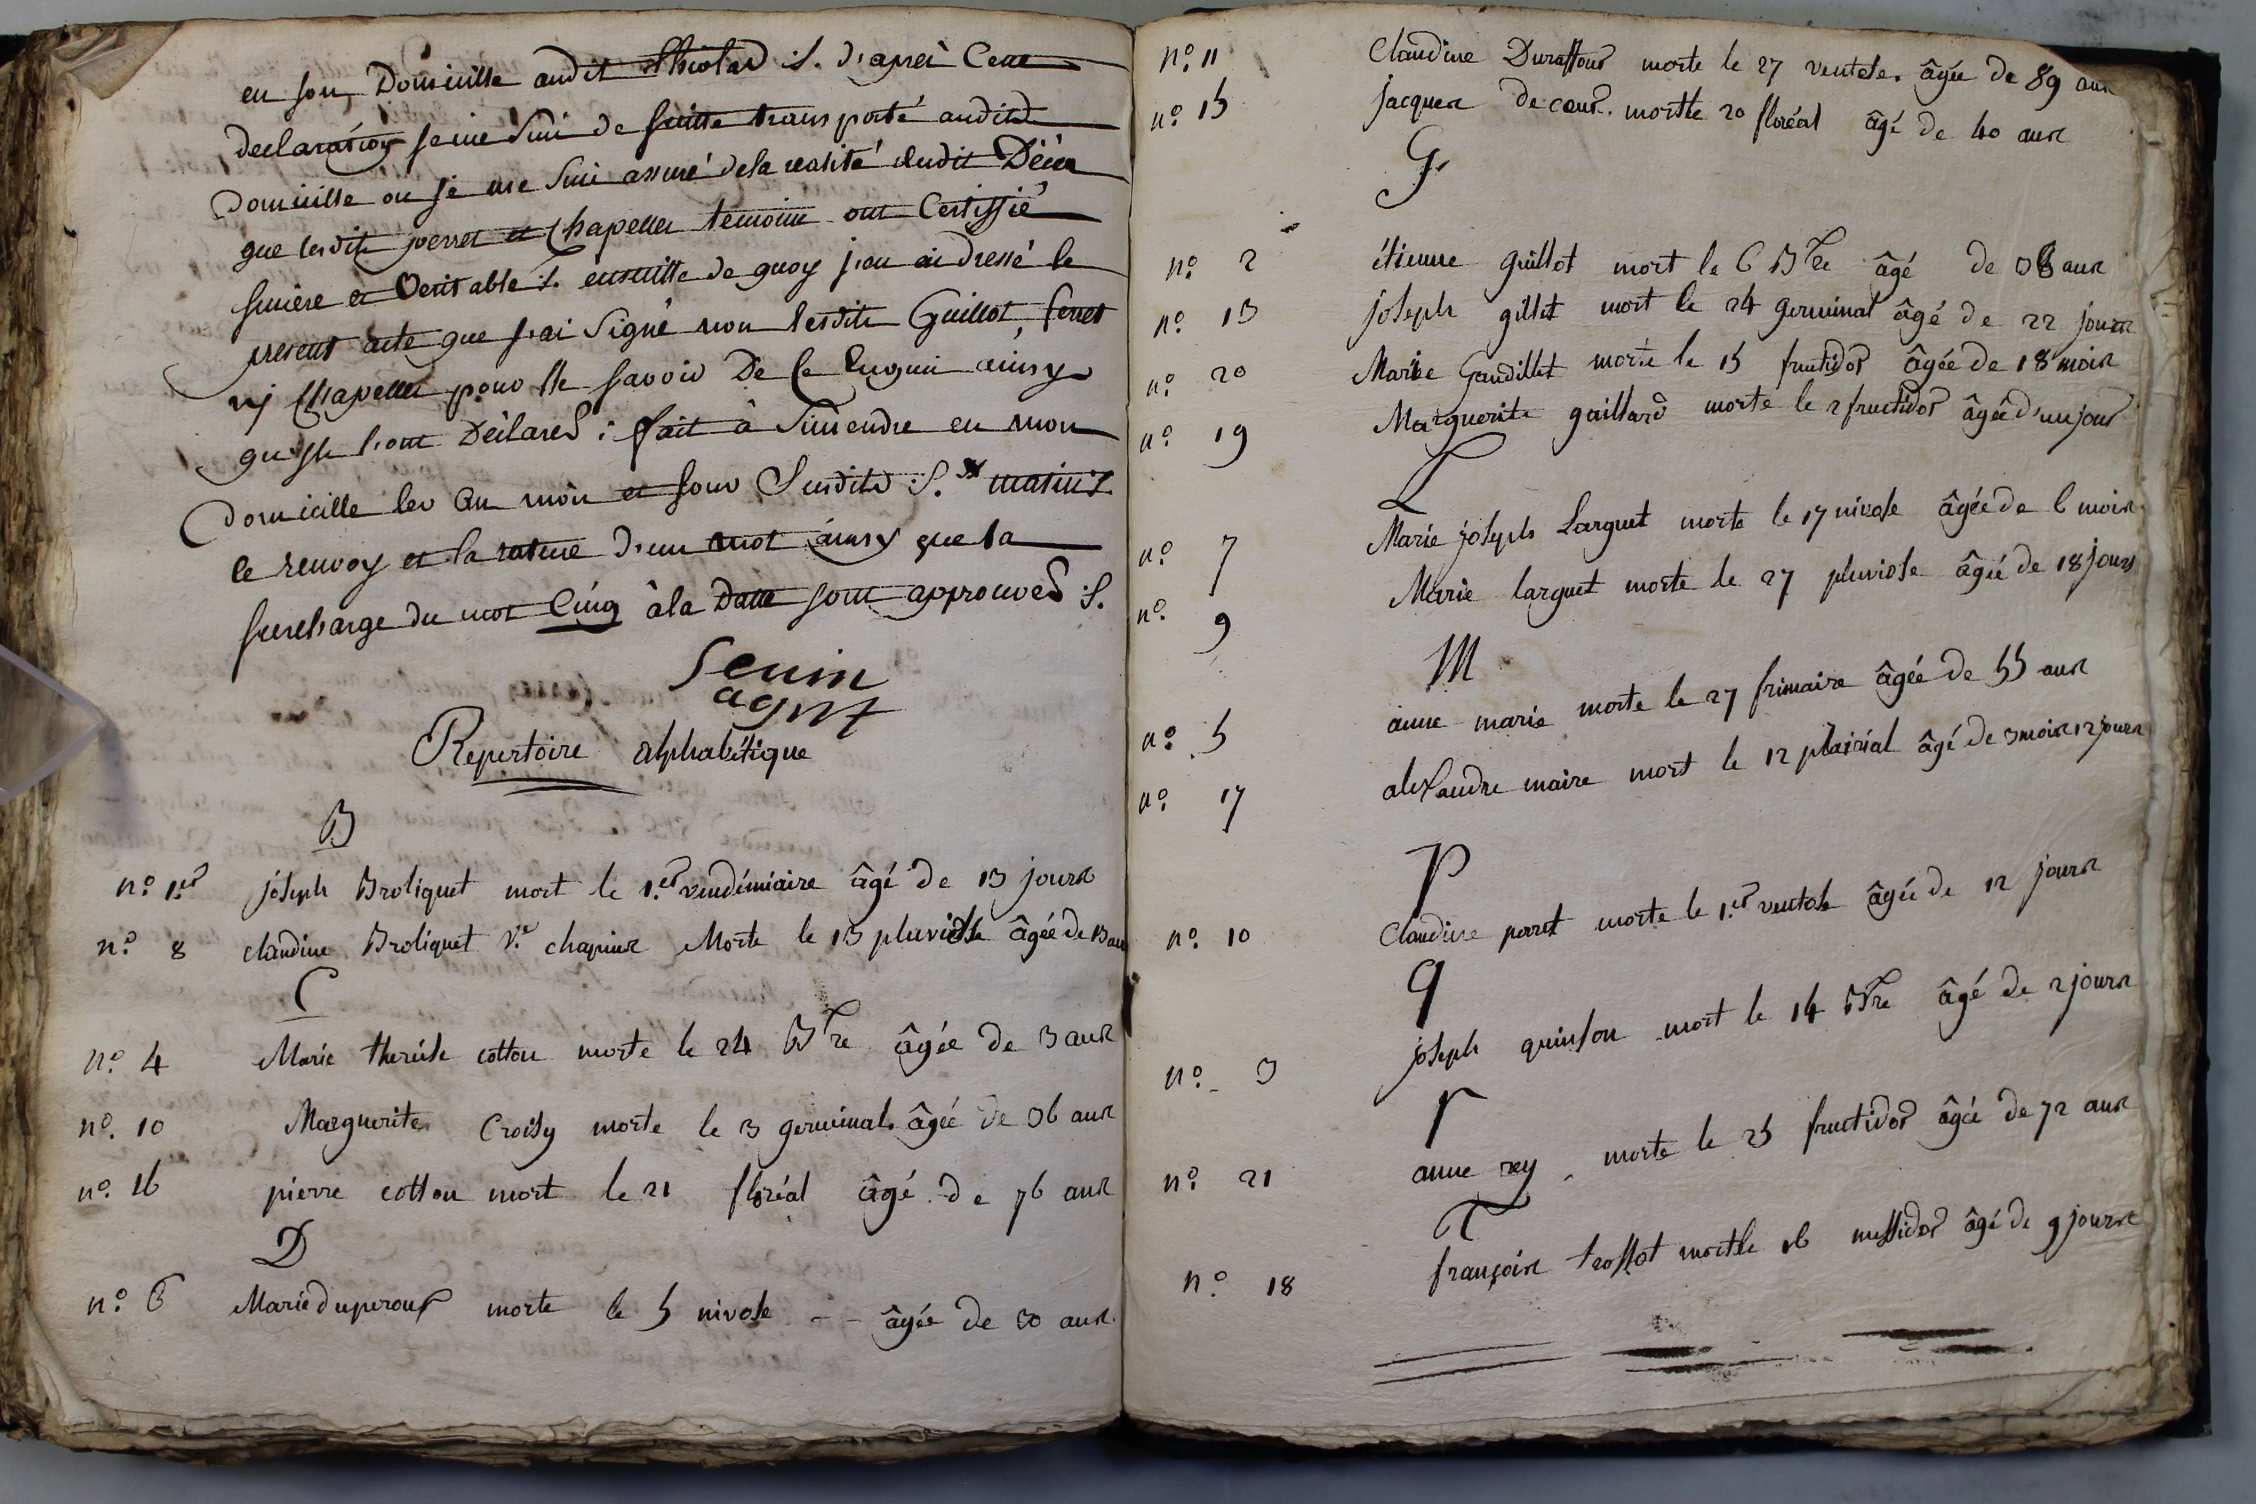 en son Domicille audit Thiolard :/. d'après Cette
declaration je me suis de suitte transporté audit
domicille ou je me suis assuré dela realité dudit Décès
que lesdits perret et Chapelles temoins ont Certiffié
sincère et veritable :/. ensuitte de quoy j'en ai dressé le
present acte que j'ai signé non lesdits Guillot, perret
nj Chapelles pour ne savoir De Ce Enquis ainsy
qu'ils l'ont Déclares : fait à Simendre en mon
Domicille les an mois et jour Susdits :/.
le renvoy et la rature d'un mot ainsy que la
surcharge du mot Cinq à la Date sont approuvés :/.
Sevin
agnt
Repertoire alphabétique
B
n.o 1.er joseph Broliquet mort le 1.er vendémiaire âgé de 13 jours
n.o 8 claudine Broliquet v.e chapuis Morte le 13 pluviose âgée de 13 ans
C
n.o 4 Marie therése cotton morte le 24 Bre âgée de 3 ans
n.o 10 Marguerite Croisy morte le 3 germinal âgée de 36 ans
n.o 16 pierre cotton mort le 21 floréal âgé de 76 ans
D
n.o 6 Marie duperoux morte le 5 nivose - - âgée de 30 ans
n.o 11 Claudine Duraffour morte le 27 ventose âgée de 89 ans
n.o 15 jacques decour mort le 20 floréal âgé de 40 ans
G
n.o 2 étienne guillot mort le 6 Bre âgé de ans
n.o 13 joseph gillet mort le 24 germinal âgé de 22 jours
n.o 20 Marie Gaudillet morte le 15 fructidor âgée de 18 mois
n.o 19 Marguerite gaillard morte le 2 fructidor âgée d'un jour
L
n.o 7 Marie joseph Larguet morte le 17 nivose âgée de 6 mois
n.o 9 Marie larguet morte le 27 pluviose âgée de 18 jours
M
n.o 5 anne marie morte le 27 frimaire âgée de 55 ans
n.o 17 alexandre maire mort le 12 plairial âgé de 3 mois 12 jours
P
n.o 10 Claudine perret morte le 1.er ventose âgée de 12 jours
q
n.o 3 joseph quinson mort le 14 Bre âgé de 2 jours
r
n.o 21 anne rey morte le 25 fructidor âgée de 72 ans
T
n.o 18 françois troffot mort le 16 messidor âgé de 9 jours